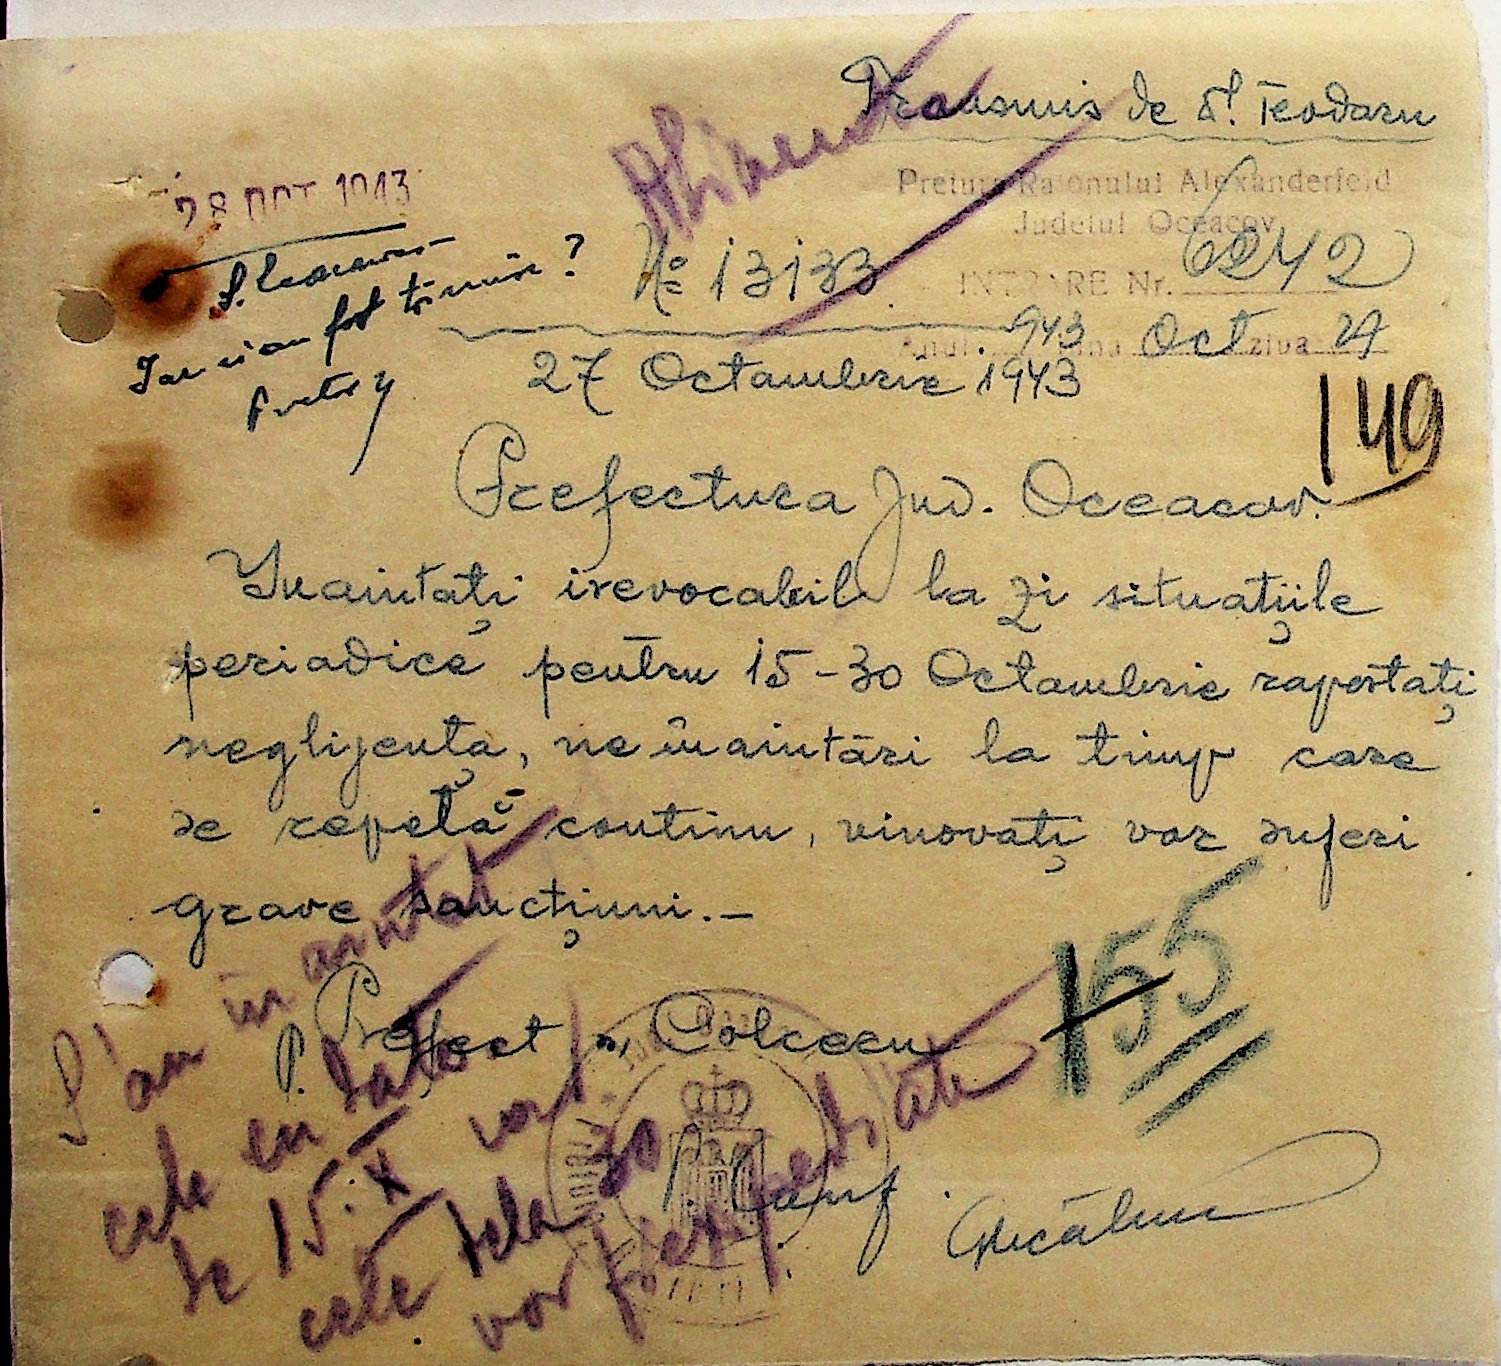 Transmis de Dl. Teodoru
Pretura Raionului Alexanderfeld
Judetul Oceacov
INTRARE Nr. 6242
Anul 943 luna Oct ziua 27
28 OCT 1943
Iar nu au fost trimise?
Pretor
No 13133
27 Octombrie 1943
149
Prefectura Jud. Oceacov.
Inaintați irevocabil la zi situațiile
periodice pentru 15-30 Octombrie raportați
neglijența, ne înaintări la timp care
se repetă continu, vinovați vor suferi
grave sancțiuni.-
P. Prefect Colceru
155
P. Conf.
S'au înaintat
cele cu data
de 15.X
cele dela 30
vor fi expediate